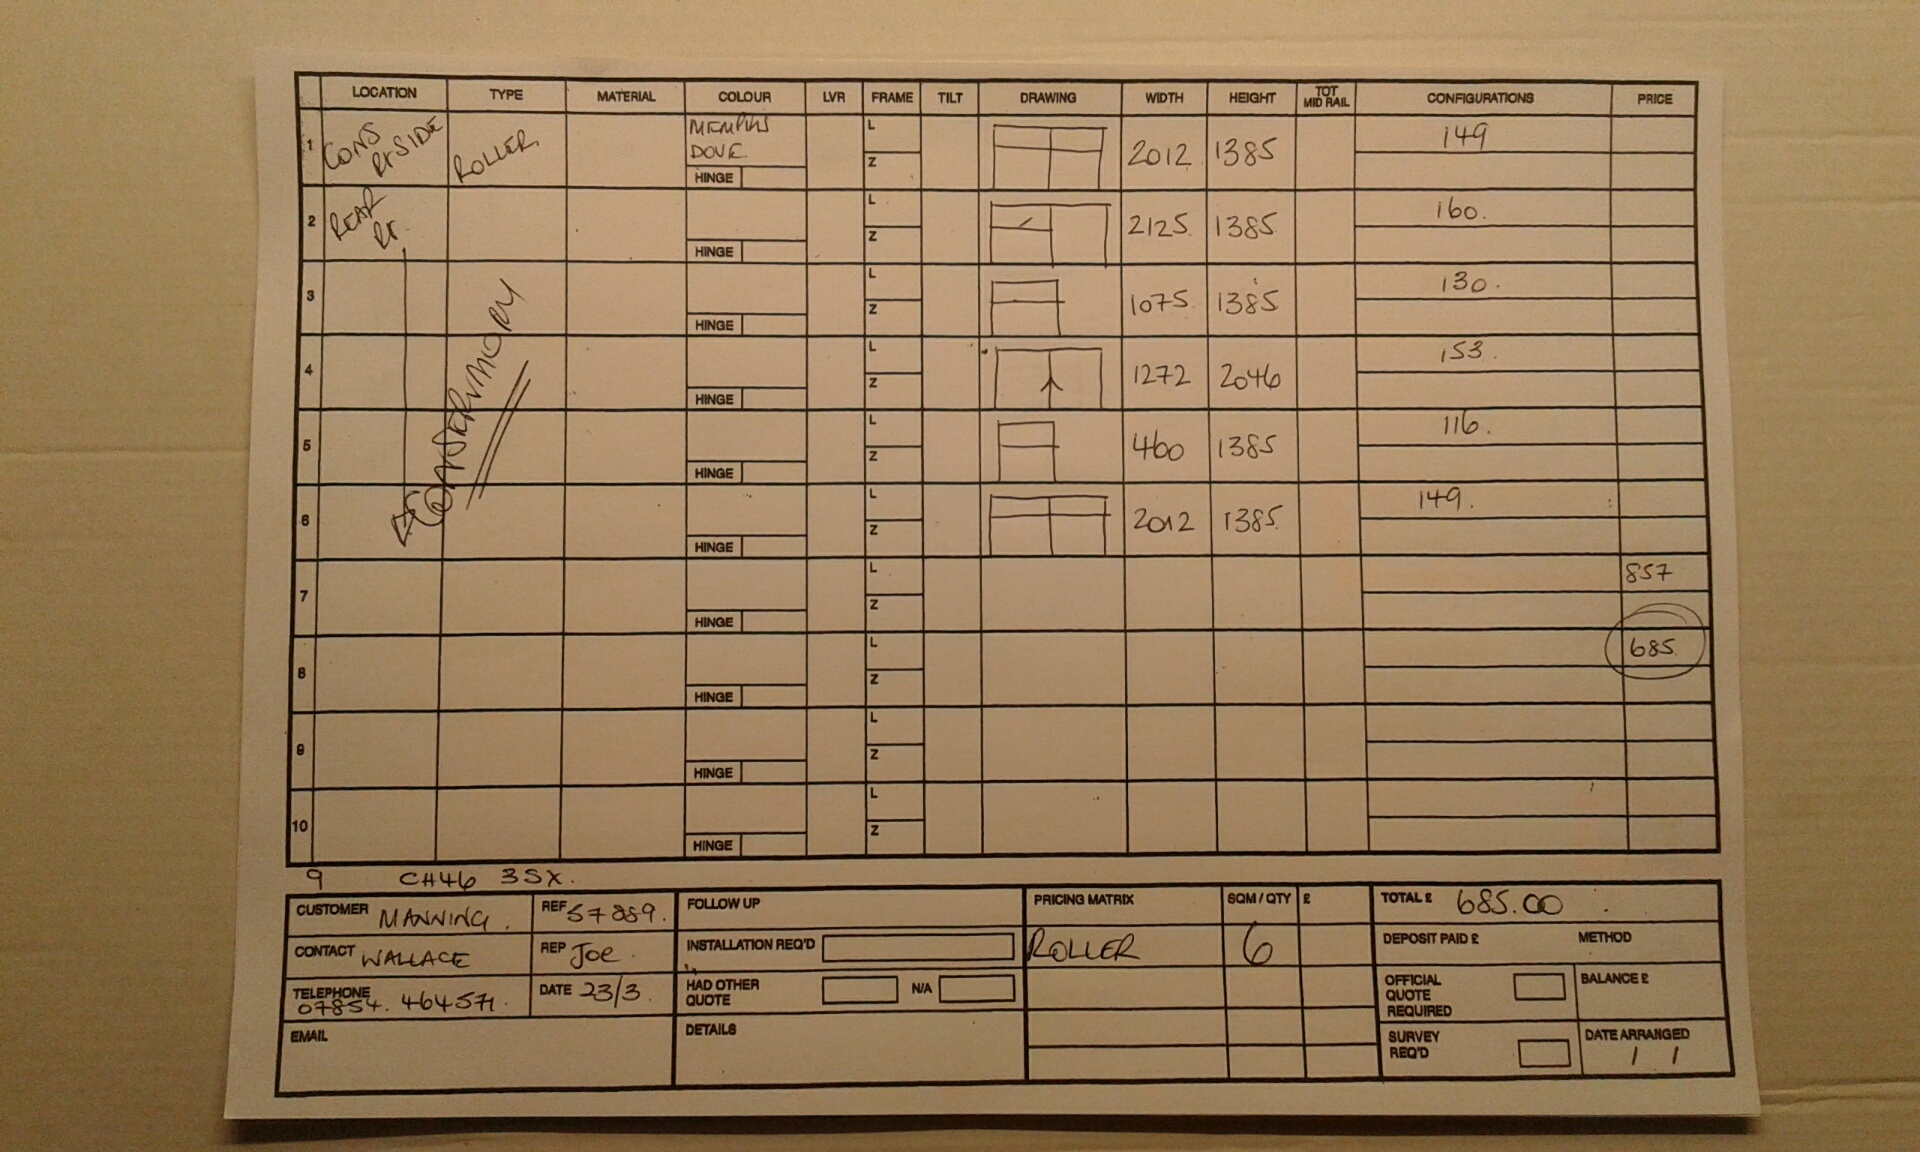 LOCATION TYPE MATERIAL COLOUR LVR FRAME TILT DRAWING WIDTH HEIGHT TOT MID RAIL CONFIGURATIONS PRICE
1 CONS RT SIDE ROLLER MEMPHIS DOVE HINGE L Z 2012 1385 149
2 REAR RT. HINGE L Z 2125 1385 160.
3 HINGE L Z 1075 1385 130.
CONSERVATORY
4 HINGE L Z 1272 2046 153.
5 HINGE L Z 460 1385 116.
6 HINGE L Z 2012 1385 149.
7 HINGE L Z 857
8 HINGE L Z 685.
9 HINGE L Z
10 HINGE L Z
9 CH46 3SX.
CUSTOMER MANNING. REF 57889. FOLLOW UP PRICING MATRIX SQM / QTY £ TOTAL £ 685.00
CONTACT WALLACE REP JOE. INSTALLATION REQ'D ROLLER 6 DEPOSIT PAID £ METHOD
TELEPHONE 07854. 464571. DATE 23/3. HAD OTHER QUOTE N/A OFFICIAL QUOTE REQUIRED BALANCE £
EMAIL DETAILS SURVEY REQ'D DATE ARRANGED / /